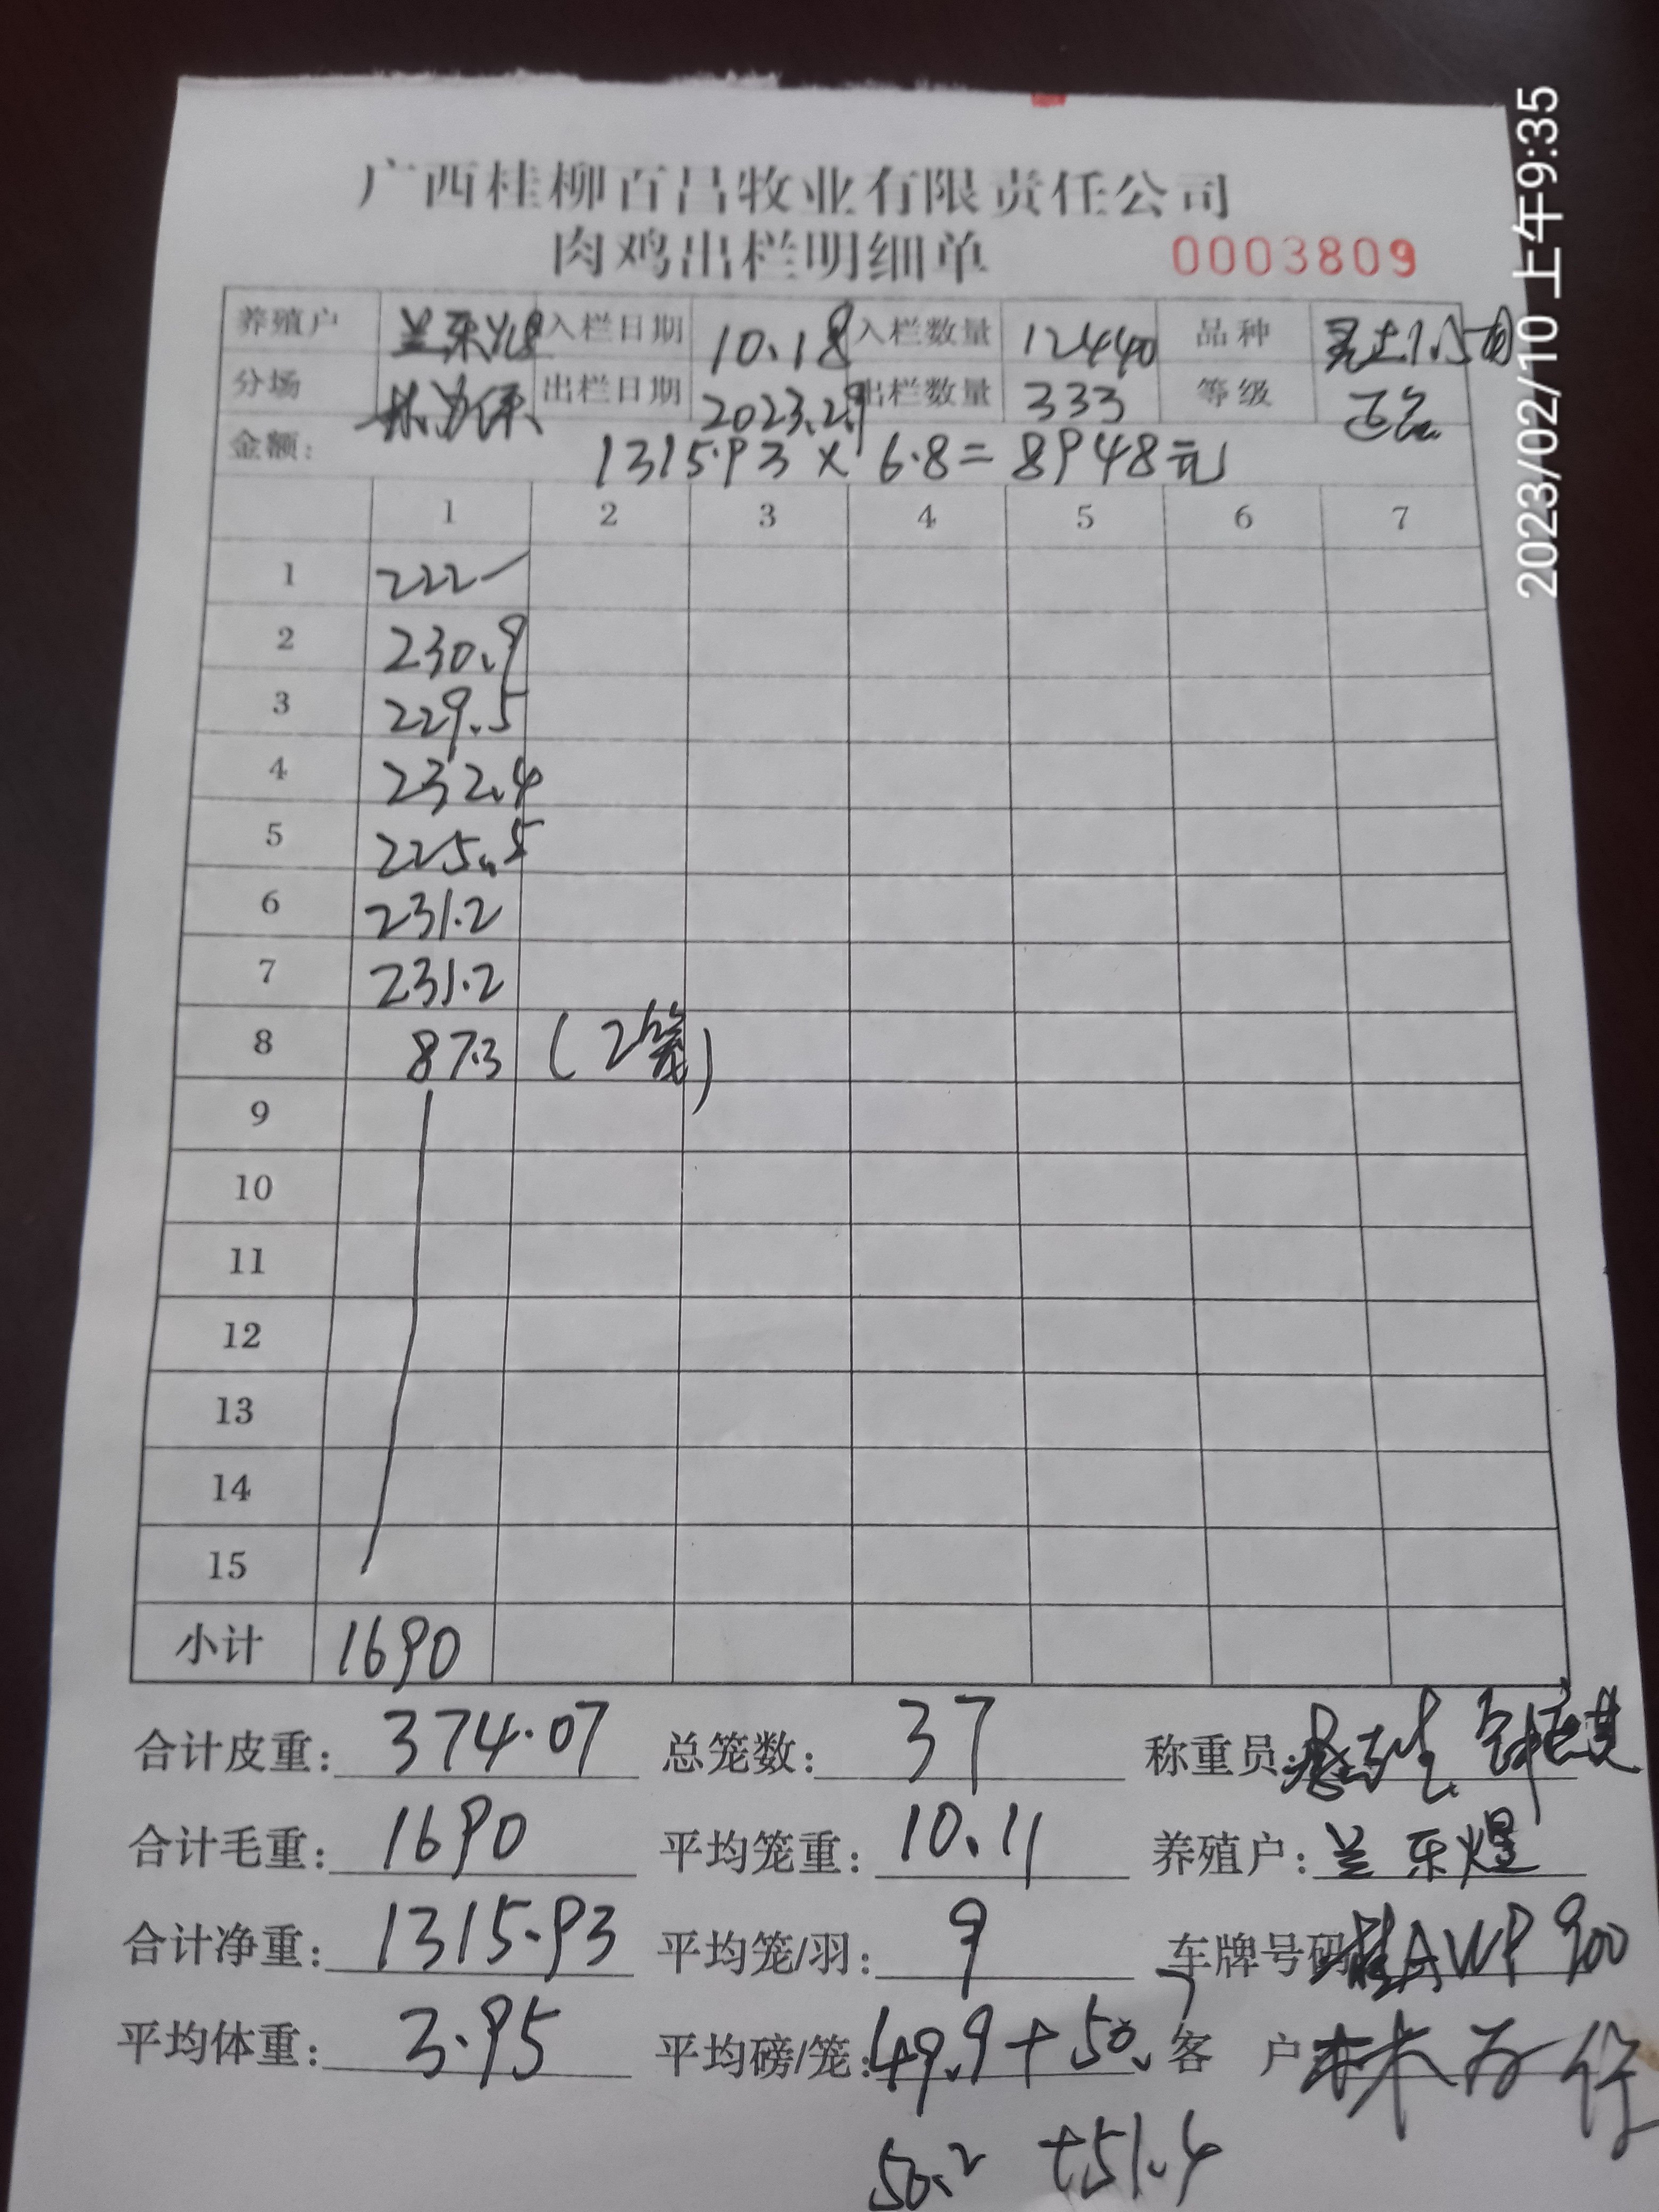 广西桂柳百昌牧业有限责任公司
肉鸡出栏明细单 0003809
养殖户 兰乐煜 入栏日期 10.18 入栏数量 12440 品种
分场 出栏日期 2023.2.9 出栏数量 333 等级
金额: 1315.93 × 6.8 = 8948元
1 2 3 4 5 6 7
1 222
2 230.9
3 229.5
4 232.4
5 225.5
6 231.2
7 231.2
8 87.3 (2笼)
9
10
11
12
13
14
15
小计 1690
合计皮重: 374.07 总笼数: 37 称重员:
合计毛重: 1690 平均笼重: 10.11 养殖户: 兰乐煜
合计净重: 1315.93 平均笼/羽: 9 车牌号码 桂AWP900
平均体重: 3.95 平均磅/笼: 49.9+50. 客户
50.2 +51.4
2023/02/10 上午9:35